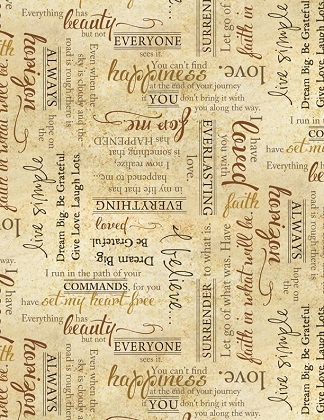 Everything has
beauty
but not
EVERYONE
sees it.
You can't find
happiness
at the end of your journey
if YOU don't bring it with
you along the way.
SURRENDER
Let go of
faith in
live simple
Dream Big. Be Grateful.
Give Love. Laugh Lots.
Even when the
sky is cloudy and the
road is rough there is
ALWAYS
hope on
the
horizon
faith in what will be.
love.
EVERYTHING
that has happened to me
in my life
I now realize,
is something that has
HAPPENED
for me
EVERLASTING
love.
I have
loved
you with
faith
live simple
Dream Big. Be Grateful.
Give Love. Laugh Lots.
loved
Be Grateful
Dream Big
I believe...
I run in the path of your
COMMANDS, for you
have set my heart free.
SURRENDER to what is.
Let go of what was. Have
faith in what will be.
horizon
ALWAYS
hope on
the
road is rough there is
sky is cloudy and the
Even when the
I run in
COMM
have set my
I have
loved
Everything has
beauty
but not
EVERYONE
sees it.
You can't find
happiness
at the end of your journey
if YOU don't bring it with
SURRENDER
Let go of
faith in
love.
live simple
Dream Big. Be Grateful.
Give Love. Laugh Lots.
Even when the
sky is cloudy
road is rough
ALWAYS
horizon